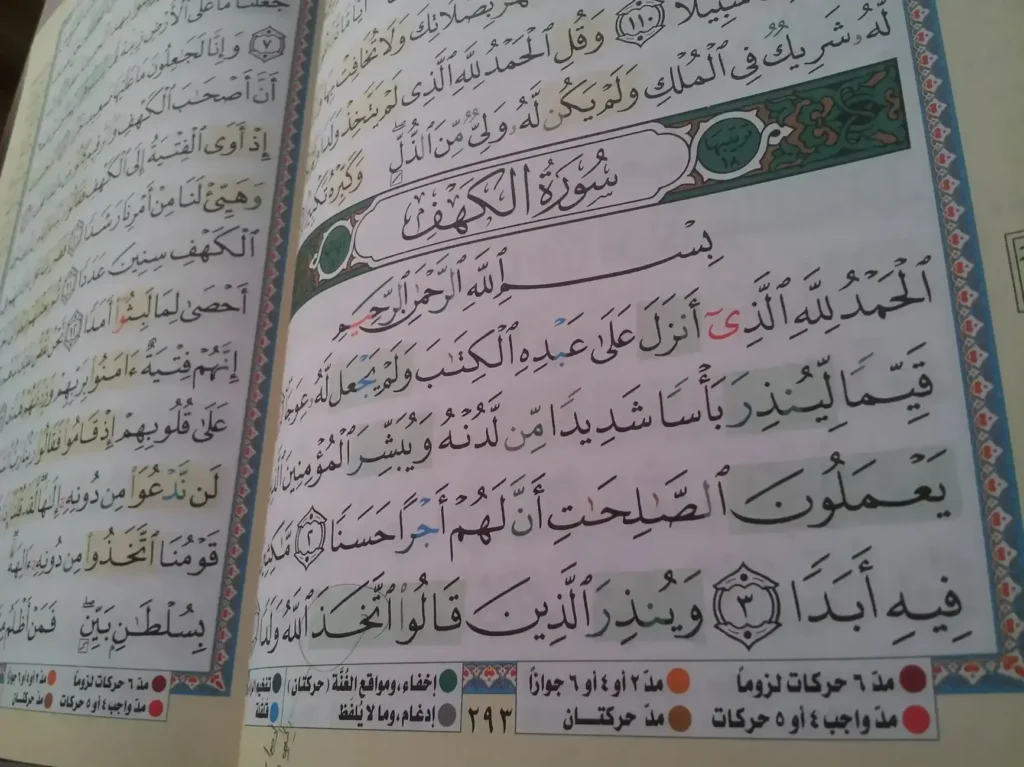 سَبِيلًا ١١٠ وَقُلِ ٱلْحَمْدُ لِلَّهِ ٱلَّذِى لَمْ يَتَّخِذْ وَلَدًا
لَّهُۥ شَرِيكٌ فِى ٱلْمُلْكِ وَلَمْ يَكُن لَّهُۥ وَلِىٌّ مِّنَ ٱلذُّلِّ ۖ وَكَبِّرْهُ
سُورَةُ الكَهْفِ
ترتيبها ١٨
بِسْمِ ٱللَّهِ ٱلرَّحْمَٰنِ ٱلرَّحِيمِ
ٱلْحَمْدُ لِلَّهِ ٱلَّذِىٓ أَنزَلَ عَلَىٰ عَبْدِهِ ٱلْكِتَٰبَ وَلَمْ يَجْعَل لَّهُۥ عِوَجَا
قَيِّمًا لِّيُنذِرَ بَأْسًا شَدِيدًا مِّن لَّدُنْهُ وَيُبَشِّرَ ٱلْمُؤْمِنِينَ
يَعْمَلُونَ ٱلصَّٰلِحَٰتِ أَنَّ لَهُمْ أَجْرًا حَسَنًا ٢ مَّٰكِثِينَ
فِيهِ أَبَدًا ٣ وَيُنذِرَ ٱلَّذِينَ قَالُوا۟ ٱتَّخَذَ ٱللَّهُ وَلَدًا
مدّ ٦ حركات لزوماً مدّ ٢ أو ٤ أو ٦ جوازاً إخفاء، ومواقع الغُنَّة (حركتان)
مدّ واجب ٤ أو ٥ حركات مدّ حركتــان إدغام، وما لا يُلفَظ قلقلة
٢٩٣
٧ وَإِنَّا لَجَٰعِلُونَ مَا عَلَيْهَا
أَنَّ أَصْحَٰبَ ٱلْكَهْفِ
إِذْ أَوَى ٱلْفِتْيَةُ إِلَى ٱلْكَهْفِ
وَهَيِّئْ لَنَا مِنْ أَمْرِنَا رَشَدًا
ٱلْكَهْفِ سِنِينَ عَدَدًا
أَحْصَىٰ لِمَا لَبِثُوٓا۟ أَمَدًا
إِنَّهُمْ فِتْيَةٌ ءَامَنُوا۟ بِرَبِّهِمْ
عَلَىٰ قُلُوبِهِمْ إِذْ قَامُوا۟ فَقَالُوا۟
لَن نَّدْعُوَا۟ مِن دُونِهِۦٓ إِلَٰهًا
قَوْمُنَا ٱتَّخَذُوا۟ مِن دُونِهِۦٓ ءَالِهَةً
بِسُلْطَٰنٍۭ بَيِّنٍ ۖ فَمَنْ أَظْلَمُ
مدّ ٦ حركات لزوماً مدّ ٢ أو ٤ أو ٦ جوازاً
مدّ واجب ٤ أو ٥ حركات مدّ حركتــان